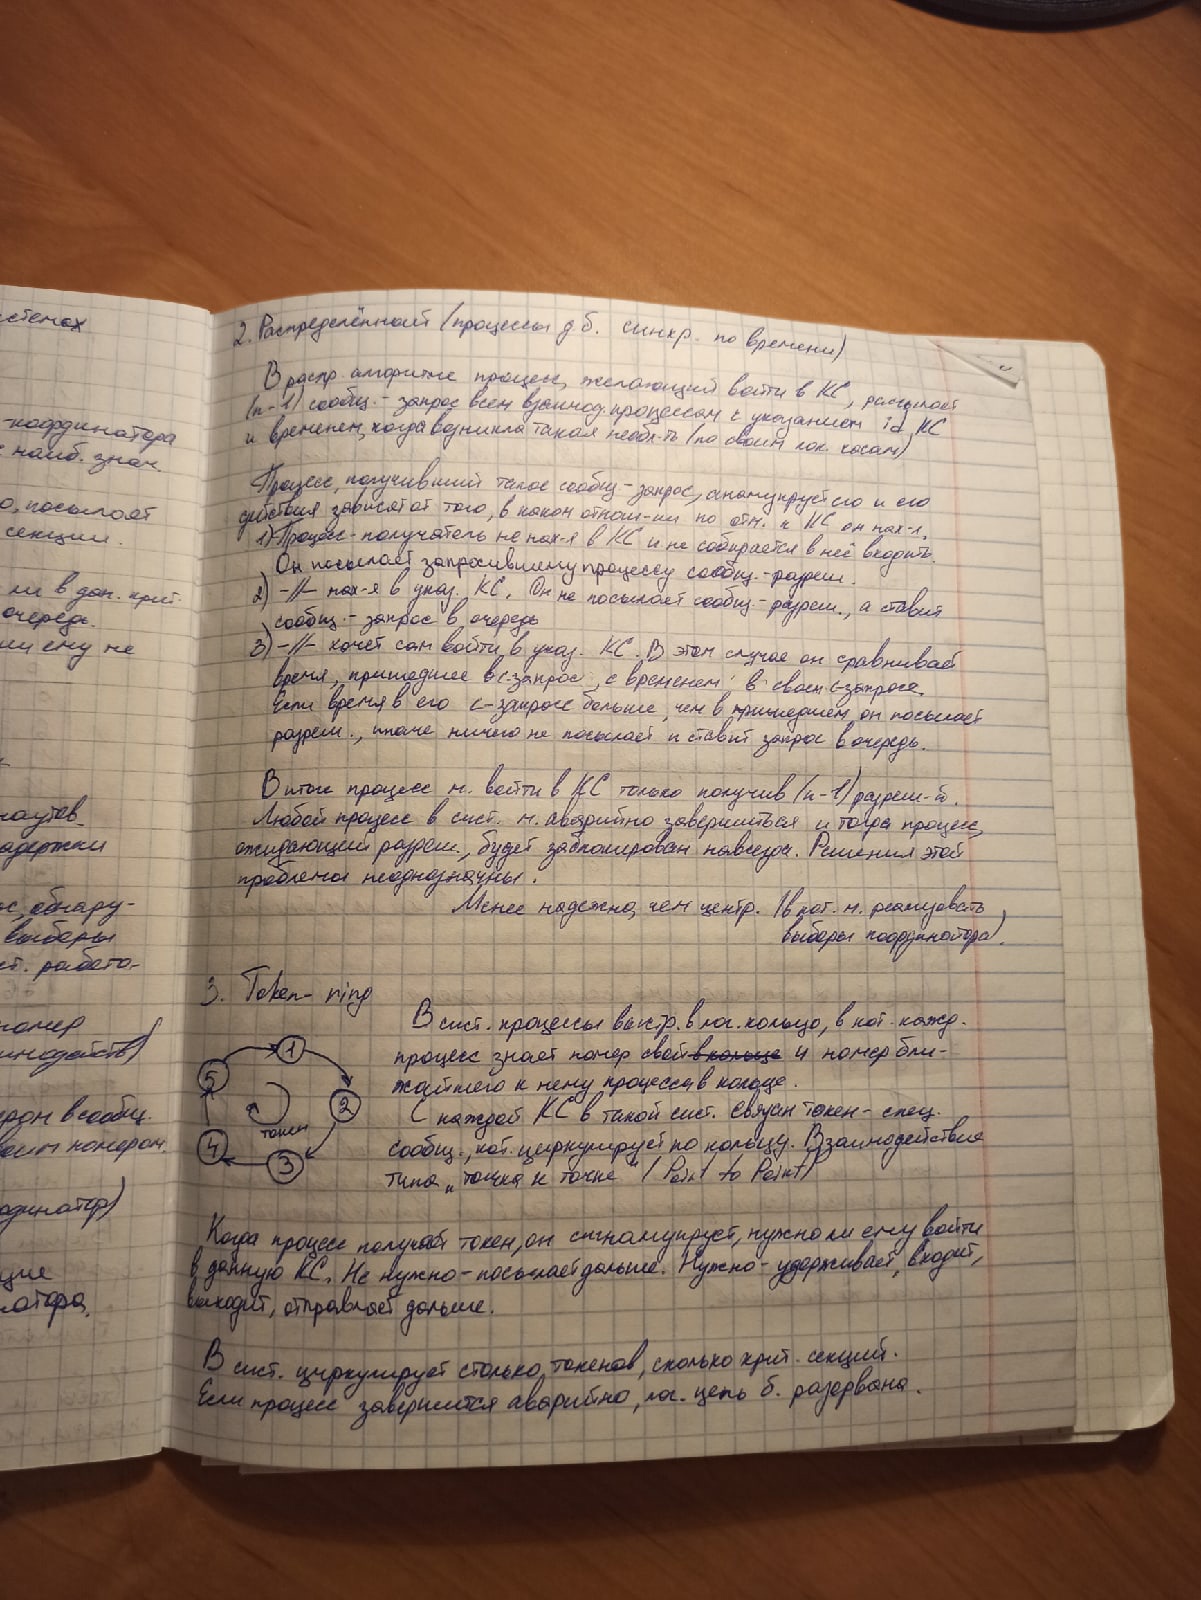 стемах
-координатора
с наиб. знач.
о, посылает
секции.
ли в дан. крит.
очередь.
ии ему не
наутов
адержки
с, обнару-
выборы
ст. работо-
номер
инодейств)
рдн в сообщ.
воим номером.
рдинатор)
щие
натора.
2. Распределённый (процессы д.б. синхр. по времени)
В распр. алгоритме процесс, желающий войти в КС, рассылает
(n-1) сообщ. - запрос всем взаимод. процессам с указанием id КС
и временем, когда возникла такая необх-ть (по своим лок. часам)
Процесс, получивший такое сообщ - запрос, анализирует его и его
действия зависят от того, в каком отнош-нии по отн. к КС он нах-я.
1) Процесс-получатель не нах-я в КС и не собирается в неё входить.
Он посылает запросившему процессу сообщ.-разреш.
2) -//- нах-я в указ. КС. Он не посылает сообщ.-разреш., а ставит
сообщ.- запрос в очередь
3) -//- хочет сам войти в указ. КС. В этом случае он сравнивает
время, пришедшее в с-запрос, с временем в своем с-запросе.
Если время в его с-запросе больше, чем в пришедшем, он посылает
разреш., иначе ничего не посылает и ставит запрос в очередь.
В итоге процесс м. войти в КС только получив (n-1) разреш-й.
Любой процесс в сист. м. аварийно завершиться и тогда процесс,
ожидающий разреш., будет заблокирован навсегда. Решения этой
проблемы неоднозначны.
Менее надежно, чем центр. (в кот. м. реализовать
выборы координатора).
3. Token-ring
1
2
3
4
5
токен
В сист. процессы выстр. в лог. кольцо, в кот. кажд.
процесс знает номер свой в кольце и номер бли-
жайшего к нему процесса в кольце.
С каждой КС в такой сист. связан токен - спец.
сообщ., кот. циркулирует по кольцу. Взаимодействие
типа „точка к точке" (Point to Point)
Когда процесс получает токен, он анализирует, нужно ли ему войти
в данную КС. Не нужно - посылает дальше. Нужно - удерживает, входит,
выходит, отправляет дальше.
В сист. циркулирует столько токенов, сколько крит. секций.
Если процесс завершится аварийно, лог. цепь б. разорвана.